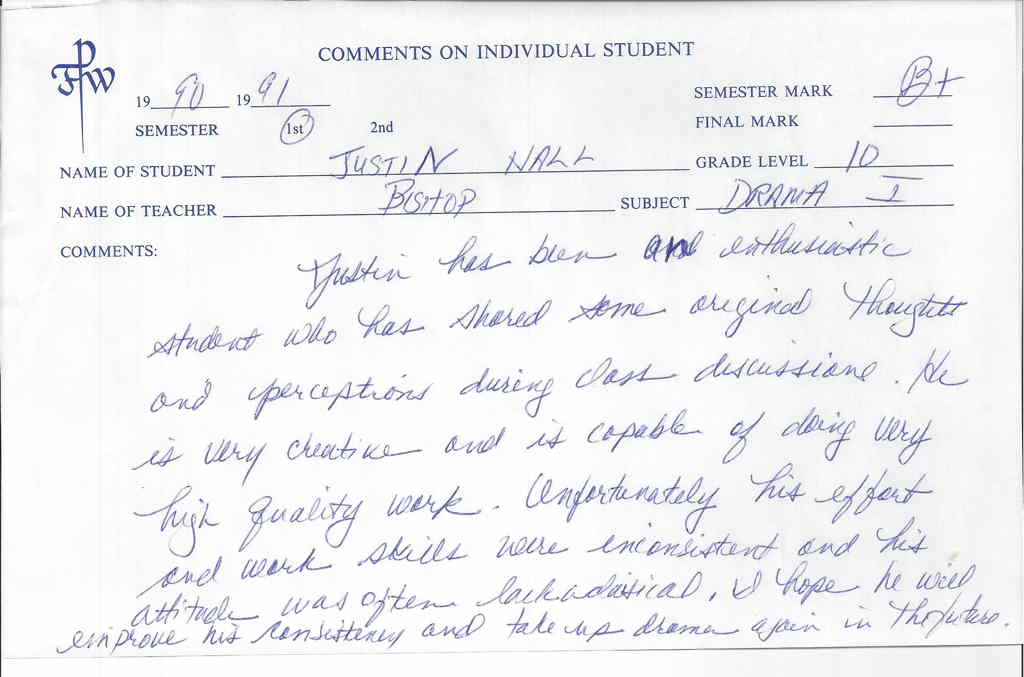 FPW
COMMENTS ON INDIVIDUAL STUDENT
1990 1991
SEMESTER 1st 2nd
SEMESTER MARK B+
FINAL MARK
NAME OF STUDENT JUSTIN HALL GRADE LEVEL 10
NAME OF TEACHER BISHOP SUBJECT DRAMA I
COMMENTS:
Justin has been an enthusiastic
student who has shared some original thoughts
and perceptions during class discussions. He
is very creative and is capable of doing very
high quality work. Unfortunately his effort
and work skills were inconsistent and his
attitude was often lackadaisical. I hope he will
improve his consistency and take up drama again in the future.